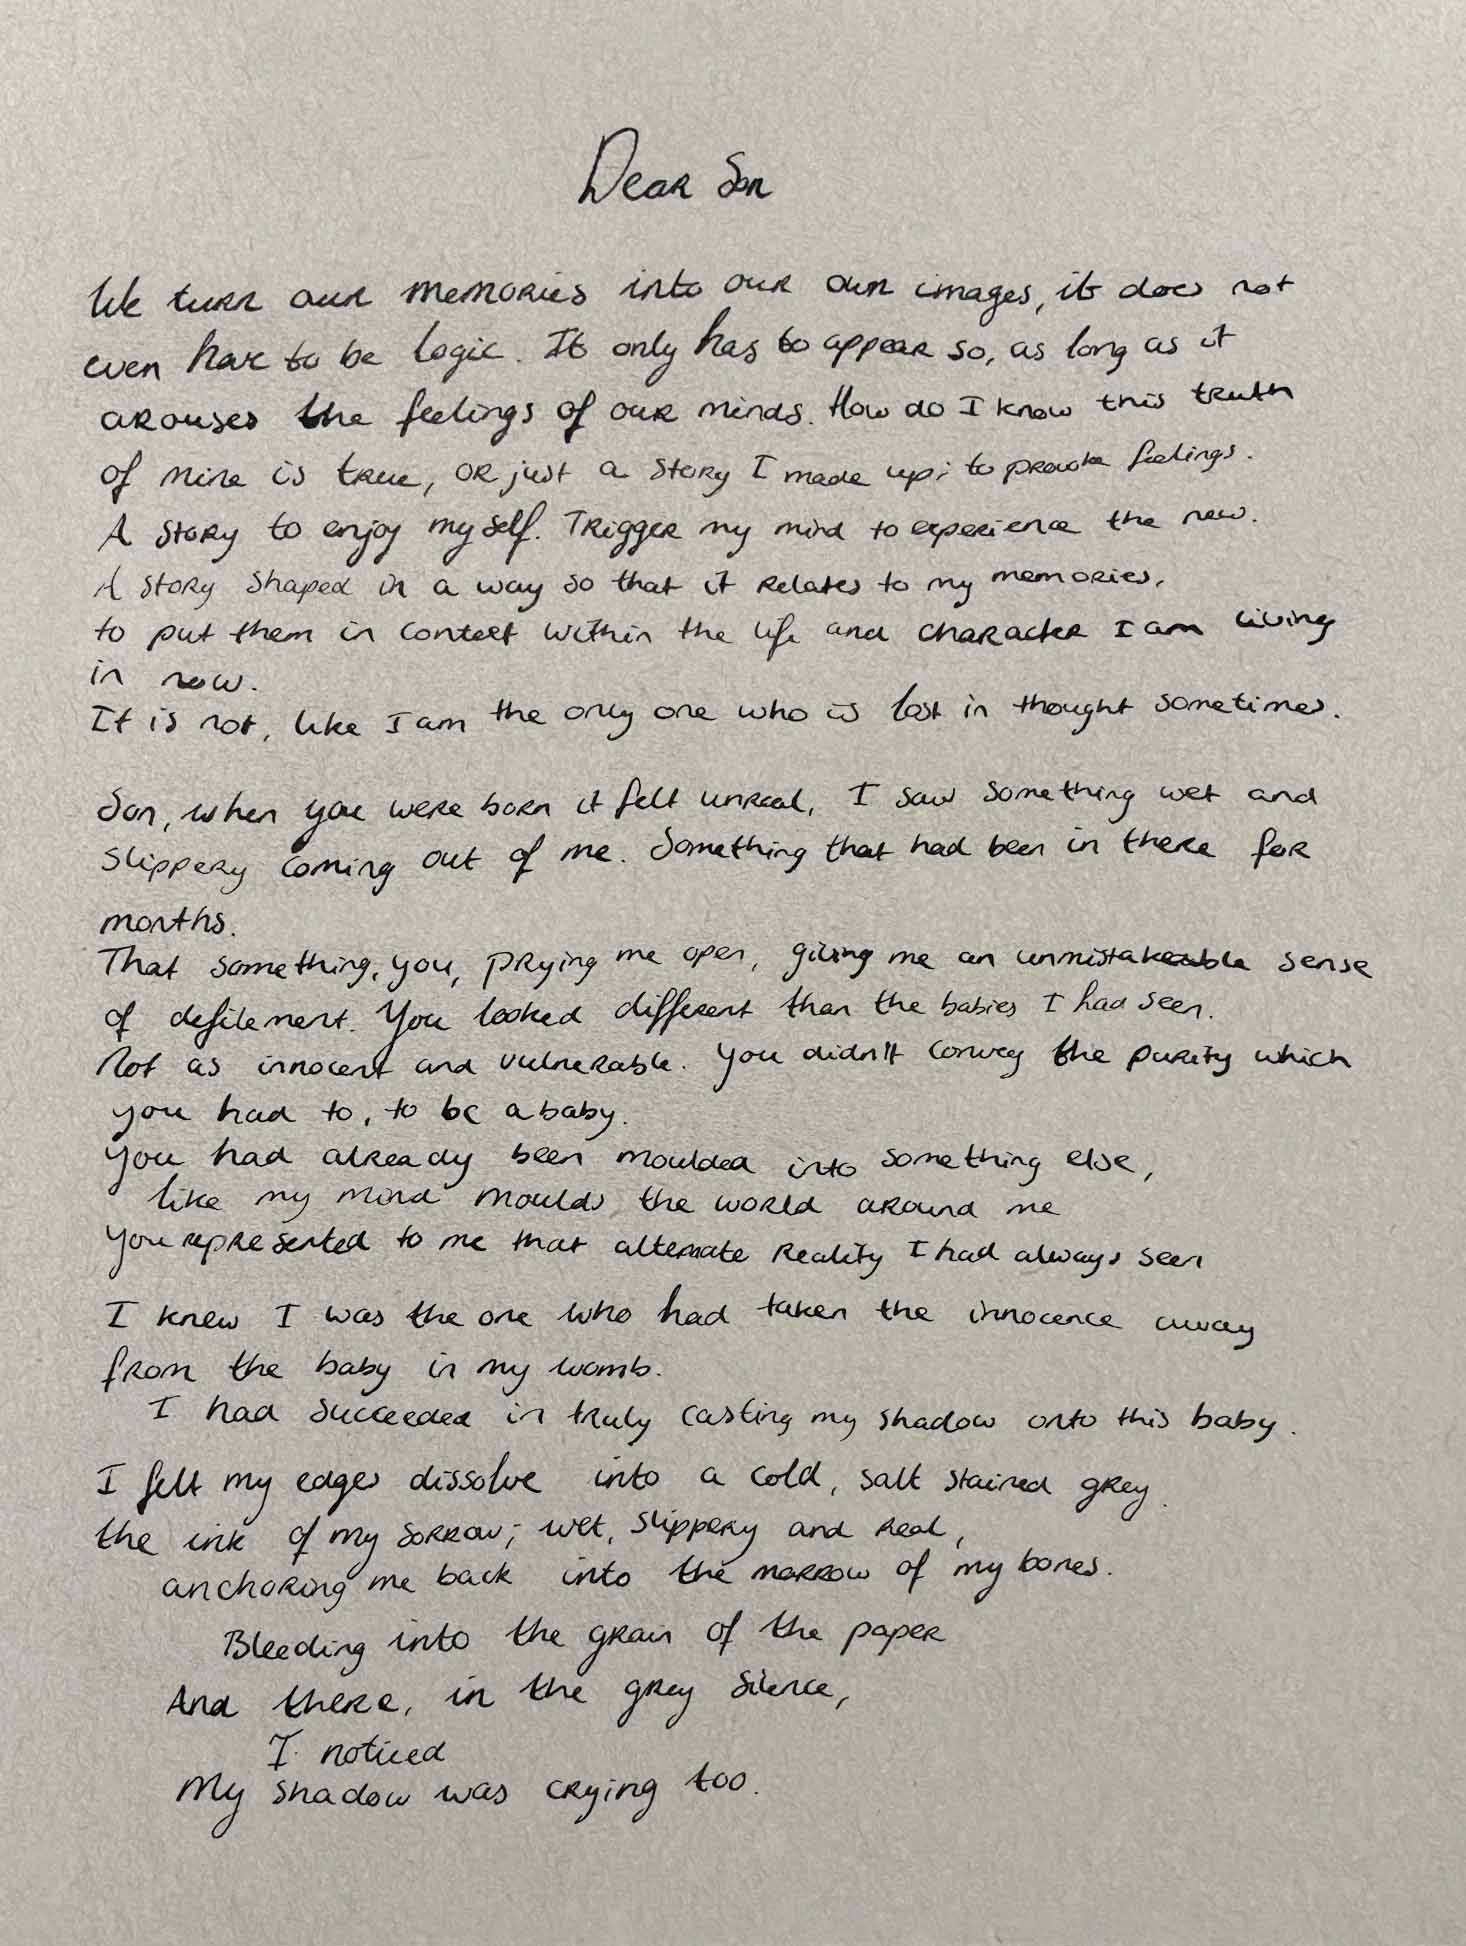 Dear Son
We turn our memories into our own images, it does not
even have to be logic. It only has to appear so, as long as it
arouses the feelings of our minds. How do I know this truth
of mine is true, or just a story I made up; to provoke feelings.
A story to enjoy myself. Trigger my mind to experience the new.
A story shaped in a way so that it relates to my memories,
to put them in context within the life and character I am living
in now.
It is not, like I am the only one who is lost in thought sometimes.
Son, when you were born it felt unreal, I saw something wet and
slippery coming out of me. Something that had been in there for
months.
That something, you, prying me open, giving me an unmistakeable sense
of defilement. You looked different than the babies I had seen.
Not as innocent and vulnerable. You didn't convey the purity which
you had to, to be a baby.
You had already been moulded into something else,
like my mind moulds the world around me
You represented to me that alternate reality I had always seen
I knew I was the one who had taken the innocence away
from the baby in my womb.
I had succeeded in truly casting my shadow onto this baby.
I felt my edges dissolve into a cold, salt stained grey.
the ink of my sorrow; wet, slippery and real,
anchoring me back into the marrow of my bones.
Bleeding into the grain of the paper
And there, in the grey silence,
I noticed
My shadow was crying too.